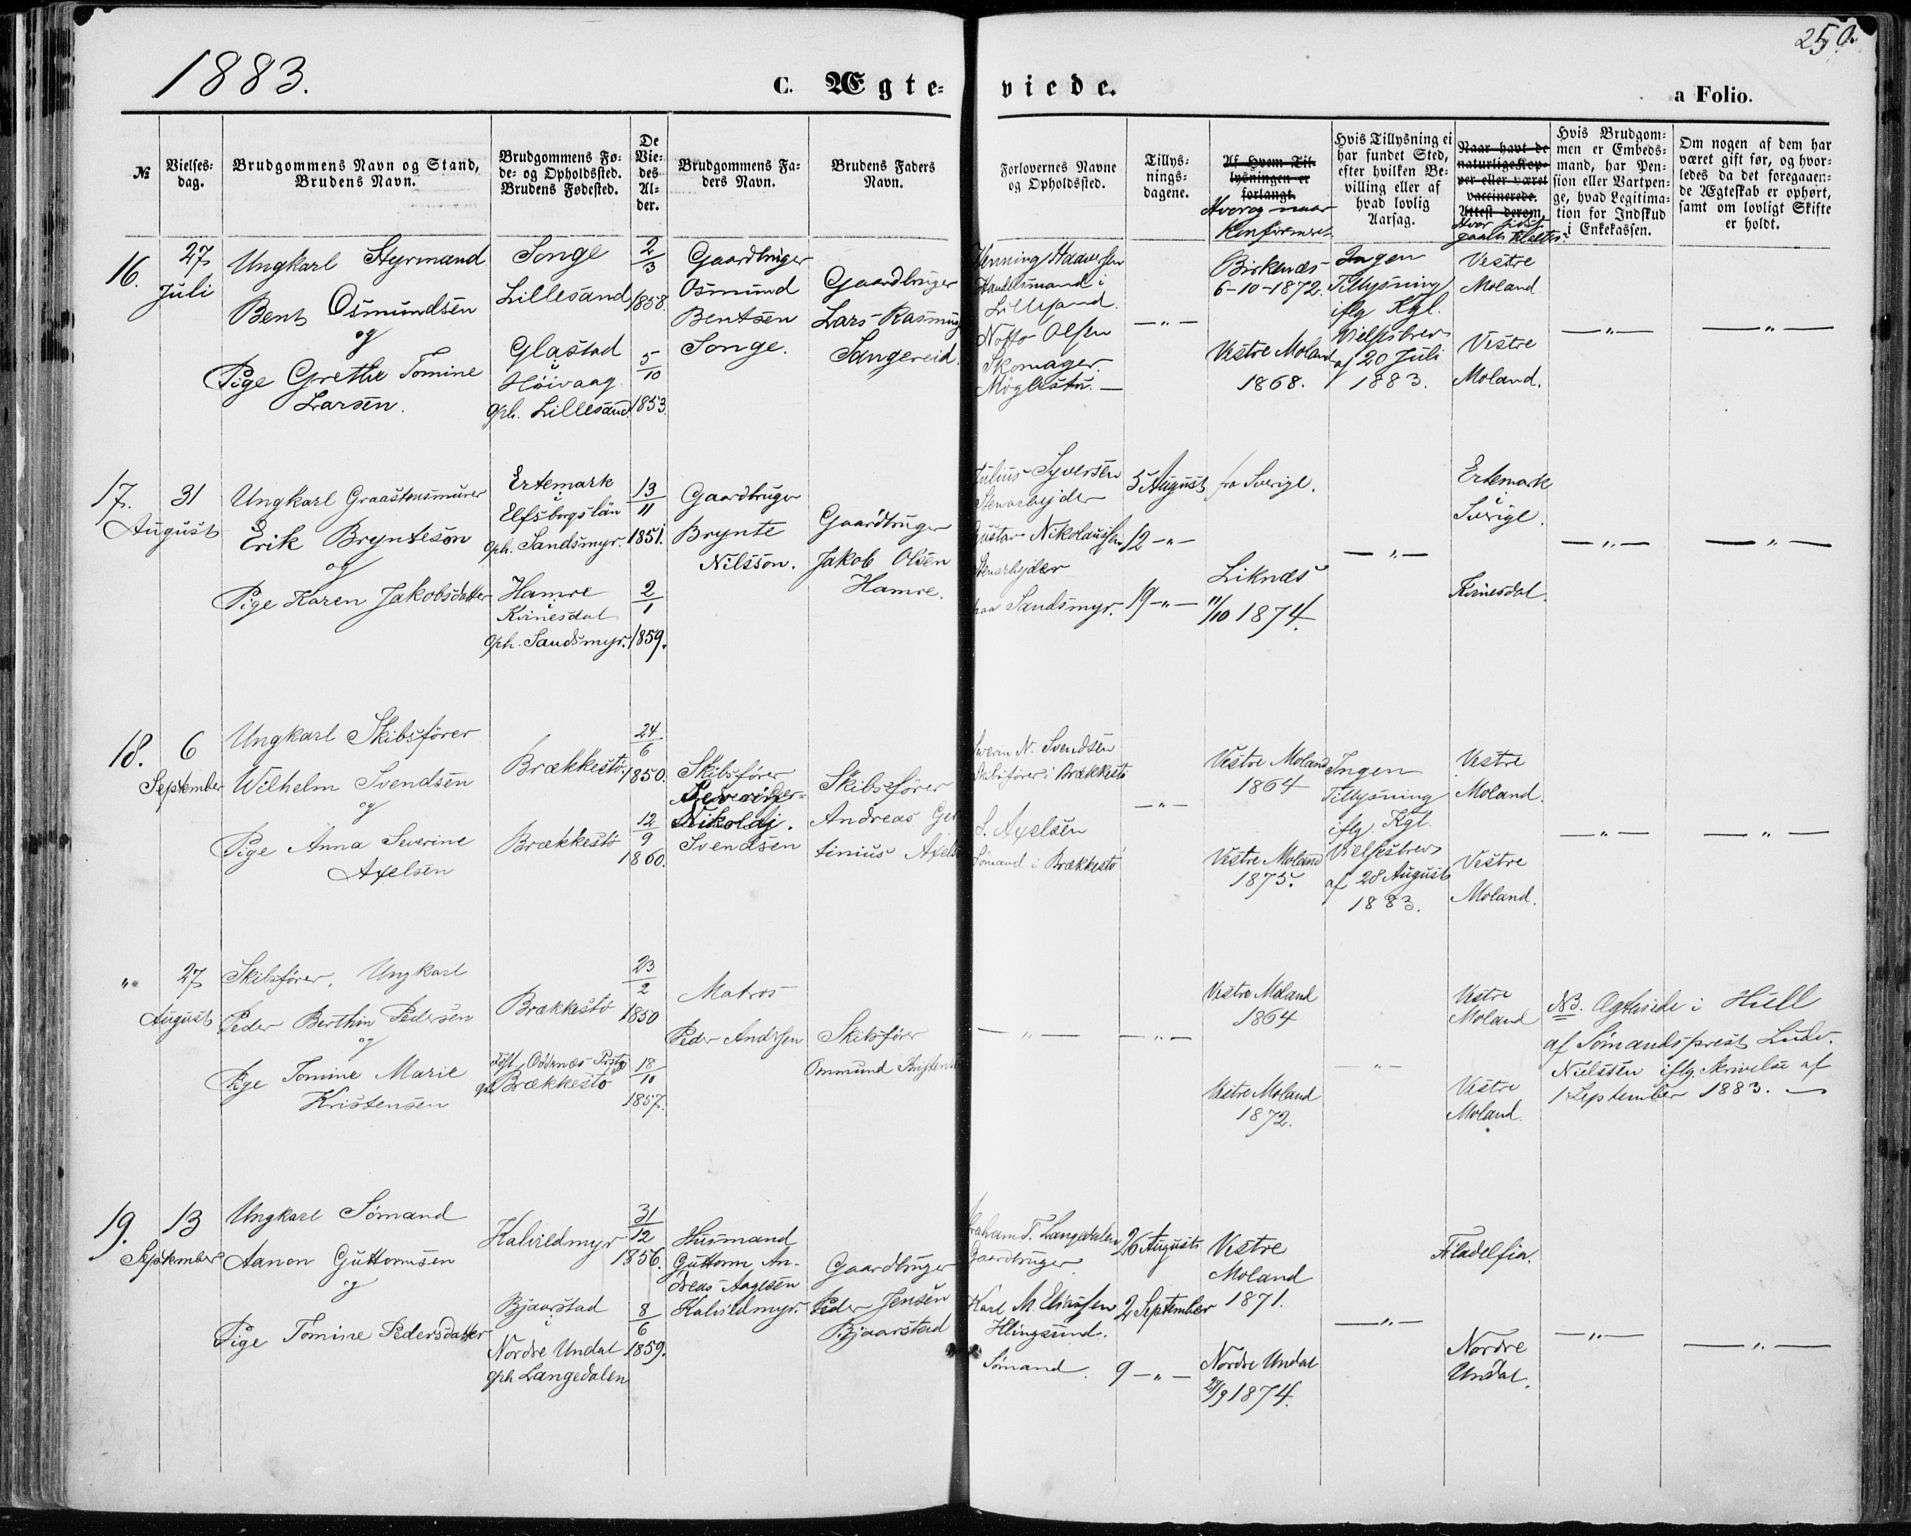 1883.
C. Ægte-
viede.
a Folio.
250.
№
Vielses-
dag.
Brudgommens Navn og Stand,
Brudens Navn.
Brudgommens Fø-
de- og Opholdssted.
Brudens Fødested.
De
Vie-
des
Al-
der.
Brudgommens Fa-
ders Navn.
Brudens Faders
Navn.
Forlovernes Navne
og Opholdssted.
Tillys-
nings-
dagene.
Af Hvem Til-
lysningen er
forlangt.
Hvor og naar
Konfirmeret
Hvis Tillysning ei
har fundet Sted,
efter hvilken Be-
villing eller af
hvad lovlig
Aarsag.
Naar havt de
naturlige Kop-
per eller været
vaccinerede.
Attest derom.
Hvor sidst
gaaet til Alters
Hvis Brudgom-
men er Embeds-
mand, har Pen-
sion eller Vartpen-
ge, hvad Legitima-
tion for Indskud
i Enkekassen.
Om nogen af dem har
været gift før, og hvor-
ledes da det foregaaen-
de Ægteskab er ophørt,
samt om lovligt Skifte
er holdt.
16.
27
Juli
Ungkarl Styrmand
Bent Osmundsen
og
Pige Grethe Tomine
Larsen.
Songe
Lillesand
Glastad
i
Høivaag
oph. Lillesand
2/3
1858.
5/10
1853.
Gaardbruger
Osmund
Bentsen
Songe.
Gaardbruger
Lars Rasmus
Sangereid.
Henning Haaversen
Handelsmand i
Lillesand.
Notto Olsen
Skomager.
Møglestu. —
— " —
Birkenæs
6-10-1872.
Vestre Moland
1868.
Ingen
Tillysning
iflg Kgl.
Vielsesbrev
af 20 Juli
1883.
Vestre
Moland.
Vestre
Moland.
— " —
— " —
17.
31
August
Ungkarl Graastensmurer
Erik Bryntesøn
og
Pige Karen Jakobsdatter
Ertemark
i
Elfsborgslän
oph. Sandsmyr.
Hamre
i
Kvinesdal
oph. Sandsmyr.
13/11
1851.
2/1
1859.
Gaardbruger
Brynte
Nilsson.
Gaardbruger
Jakob Olsen
Hamre.
Julius Syversen
Stenarbejder
Gustav Nikolaussen
Stenarbejder
paa Sandsmyr.
5 August
12 — " —
19 — " —
fra Sverige.
Liknæs
11/10 1874.
— " —
Ertemark
i
Sverige.
Kvinesdal.
— " —
— " —
18.
6
September
Ungkarl Skibsfører
Wilhelm Svendsen
og
Pige Anna Severine
Axelsen
Brækkestø.
Brækkestø
24/6
1850.
12/9
1860.
Skibsfører
Nikolaj.
Svendsen
Skibsfører
Andreas Ger
tinius Axelsen
N. Svendsen
Skibsfører i Brækkestø
S. Axelsen
Sømand i Brækkestø
— " —
Vestre Moland
1864
Vestre Moland
1875.
Ingen
Tillysning
iflg. Kgl.
Vielsesbrev
af 28 August
1883.
Vestre
Moland.
Vestre
Moland.
— " —
— " —
"
27
August
Skibsfører, Ungkarl
Peder Berthin Pedersen
og
Pige Tomine Marie
Kristensen
Brækkestø
Født Oddernæs Prstgj
oph. Brækkestø
23/2
1850
18/10
1857.
Matros
Peder Andersen
Skibsfører
Ommund Kristensen
— " —
— " —
Vestre Moland
1864
Vestre Moland
1872.
— " —
Vestre
Moland
Vestre
Moland.
NB. Ægteviede i Hull
af Sømandsprest Ludv.
Nielssen iflg. Skrivelse af
1 September 1883. —
19.
13
September
Ungkarl Sømand
Aanon Guttormsen
og
Pige Tomine Pedersdatter
Kalvildmyr
Bjaarstad
i
Nordre Undal
oph Langedalen
31/12
1856.
8/6
1859.
Husmand
Guttorm An-
dreas Aagesen
Kalvildmyr.
Gaardbruger
Peder Jensen
Bjaarstad
Abraham T. Langedalen
Gaardbruger
Karl M. Eliassen
Sømand.
26 August
2 September
9 — " —
Vestre
Moland
1871.
Nordre Undal
27/9 1874.
— " —
Filadelfia.
Nordre
Undal.
— " —
— " —